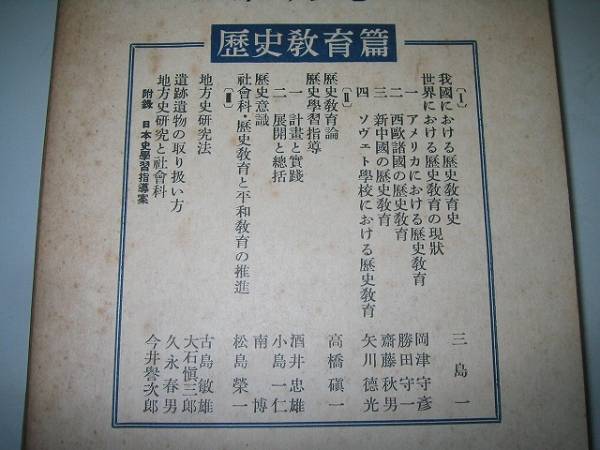 歷史教育篇
〔Ⅰ〕
我國における歷史教育史 三島一
世界における歷史教育の現狀
一 アメリカにおける歷史教育 岡津守彥
二 西歐諸國の歷史教育 勝田守一
三 新中國の歷史教育 齋藤秋男
四 ソヴェト學校における歷史教育 矢川德光
〔Ⅱ〕
歷史教育論 高橋磌一
歷史學習指導
一 計畫と實踐 酒井忠雄
二 展開と總括 小島一仁
歷史意識 南博
社會科・歷史教育と平和教育の推進 松島榮一
〔Ⅲ〕
地方史硏究法 古島敏雄
遺跡遺物の取り扱い方 大石愼三郎
地方史硏究と社會科 久永春男
附錄 日本史學習指導案 今井譽次郎